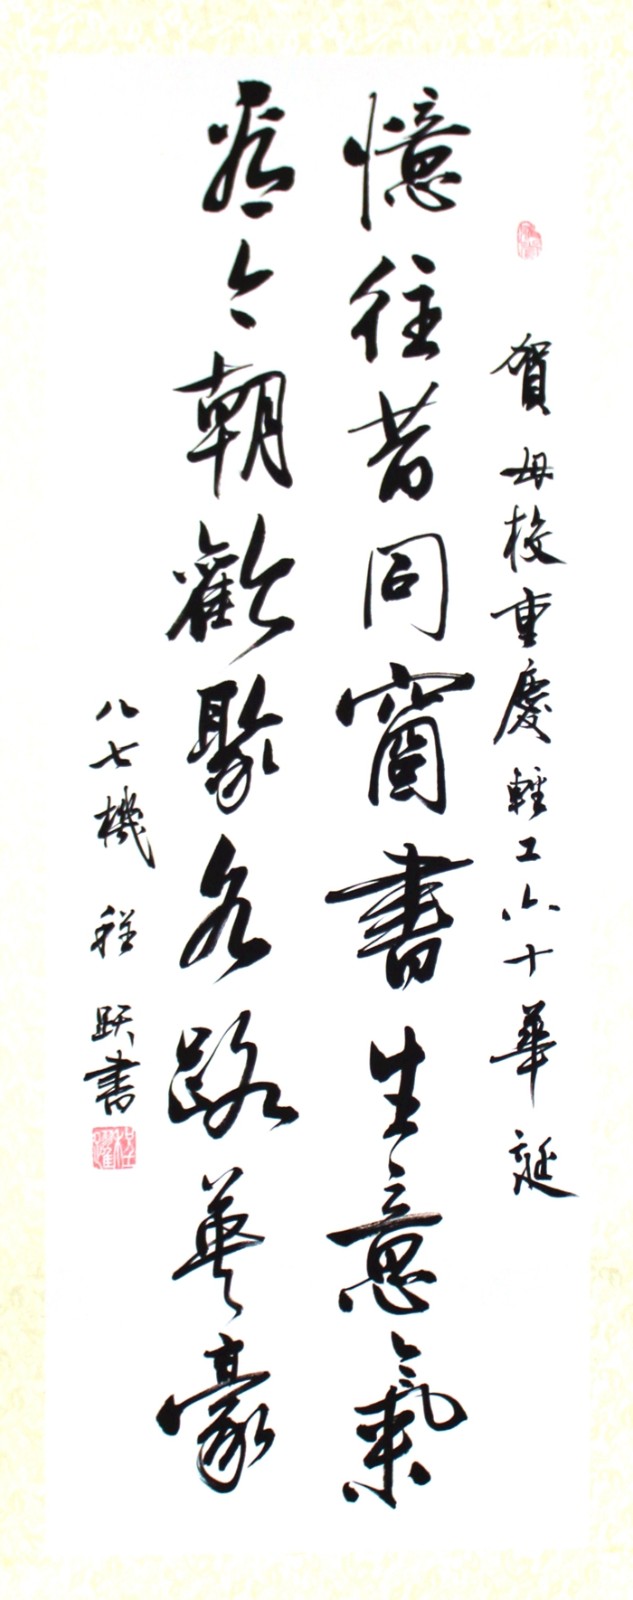 賀母校重慶輕工六十華誕
憶往昔同窗書生意氣
看今朝歡聚各路英豪
八七機 程跃書